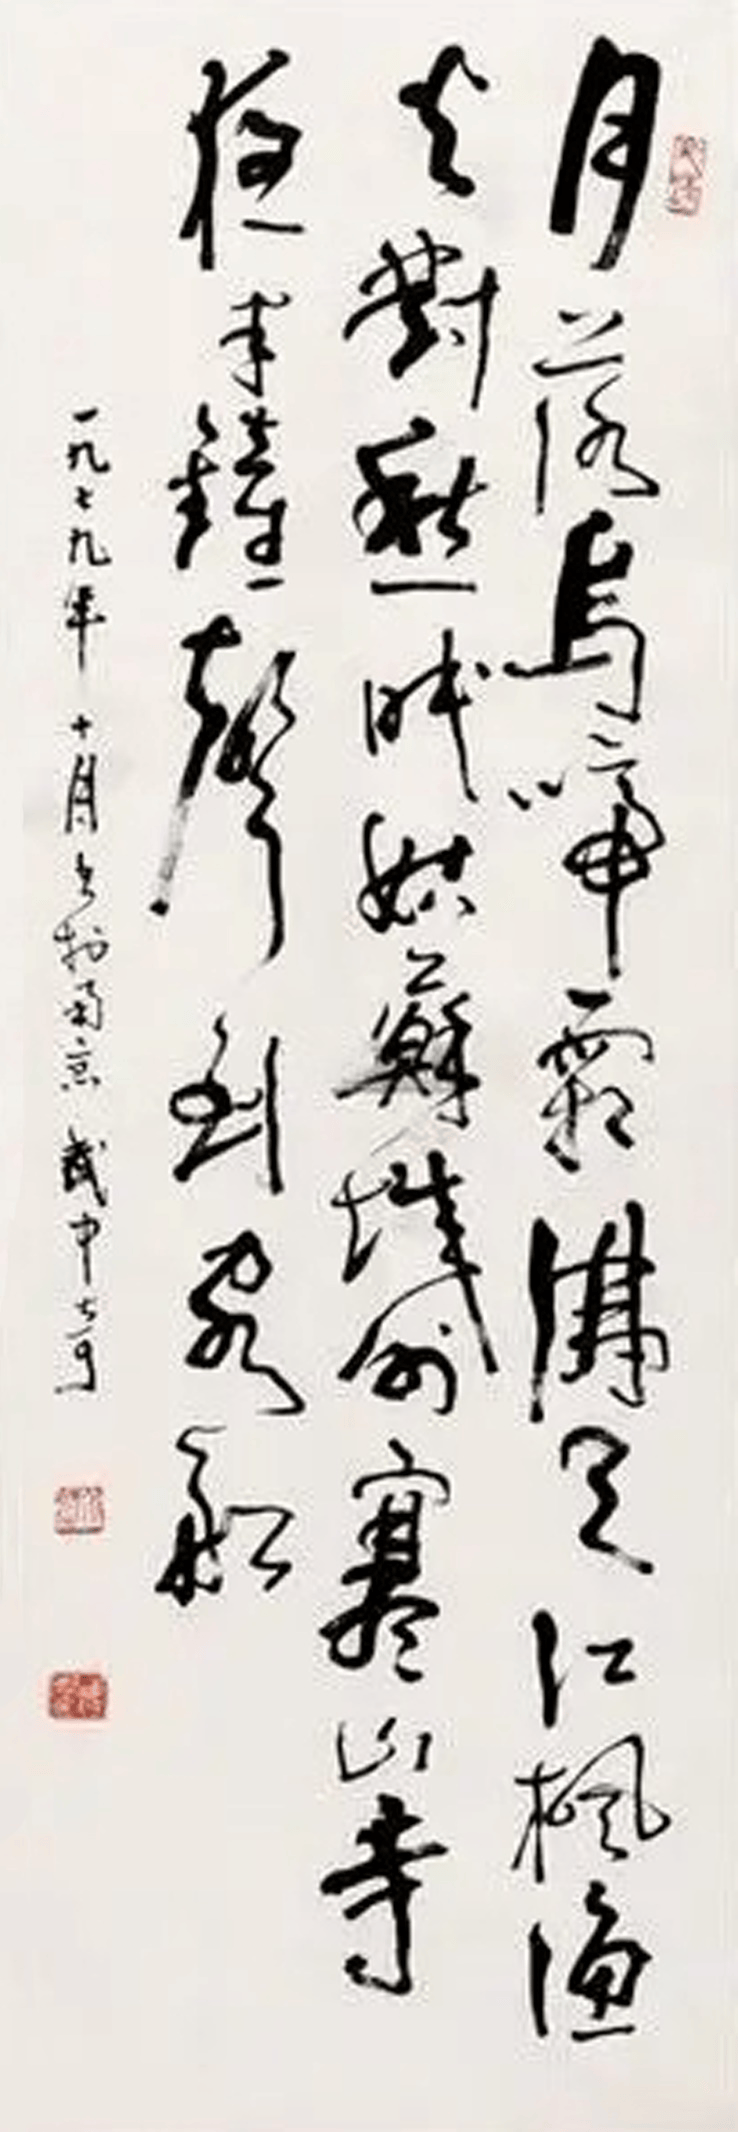 月落烏啼霜滿天江楓漁
火對愁眠姑蘇城外寒山寺
夜半鐘聲到客船
一九七九年十月書於南京武中奇